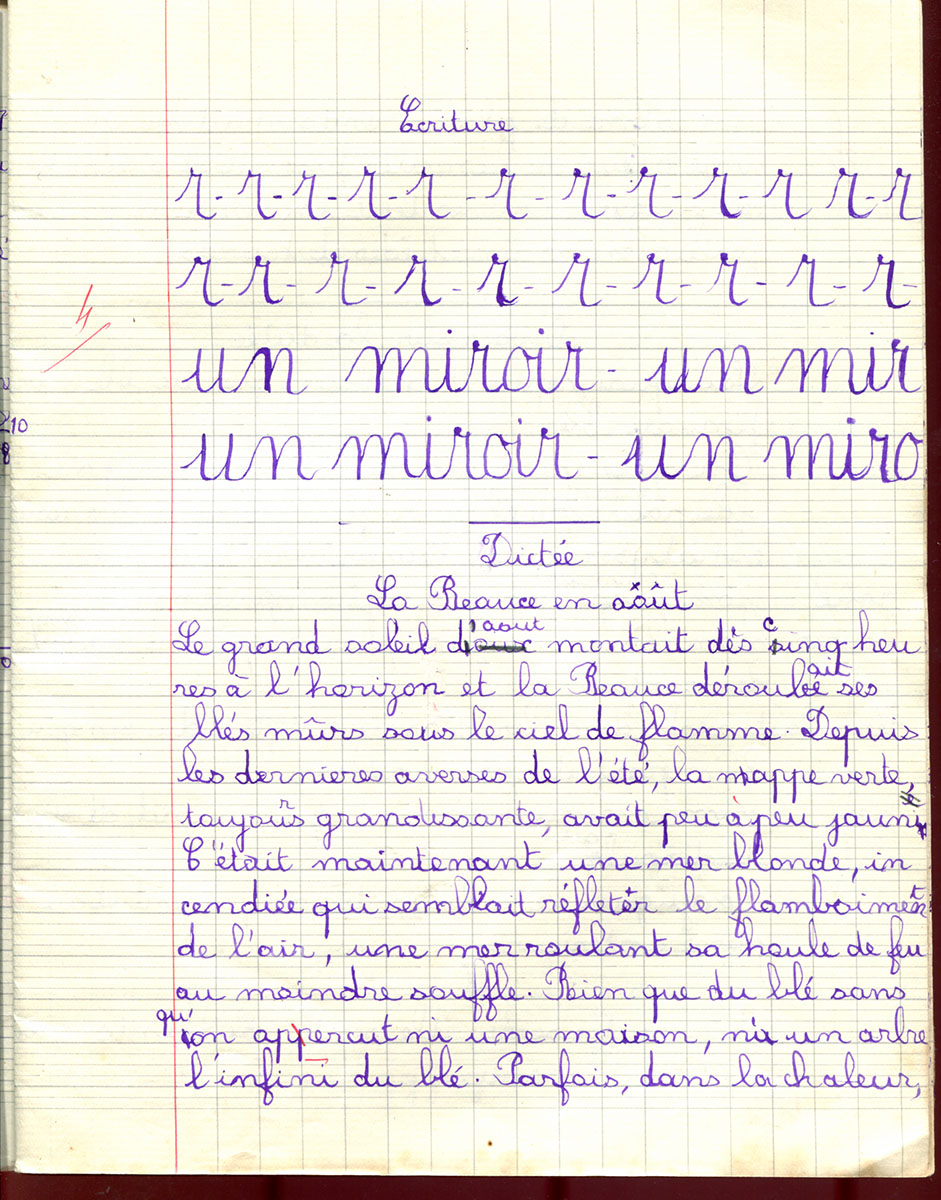 Ecriture
r - r - r - r - r - r - r - r - r - r r - r
r - r - r - r - r - r - r - r - r - r -
un miroir - un mir
un miroir - un miro
10
8
4
Dictée
La Beauce en août
aout
Le grand soleil d' montait dès cinq heu
ait
res à l'horizon et la Beauce déroulé ses
blés mûrs sous le ciel de flamme. Depuis
les dernieres averses de l'été, la nappe verte,
toujours grandissante, avait peu à peu jauni
C'était maintenant une mer blonde, in
cendiée qui semblait réfleter le flamboiment
de l'air, une mer roulant sa houle de feu
au moindre souffle. Rien que du blé sans
qu'
on appercut ni une maison, ni un arbre
l'infini du blé. Parfois, dans la chaleur,